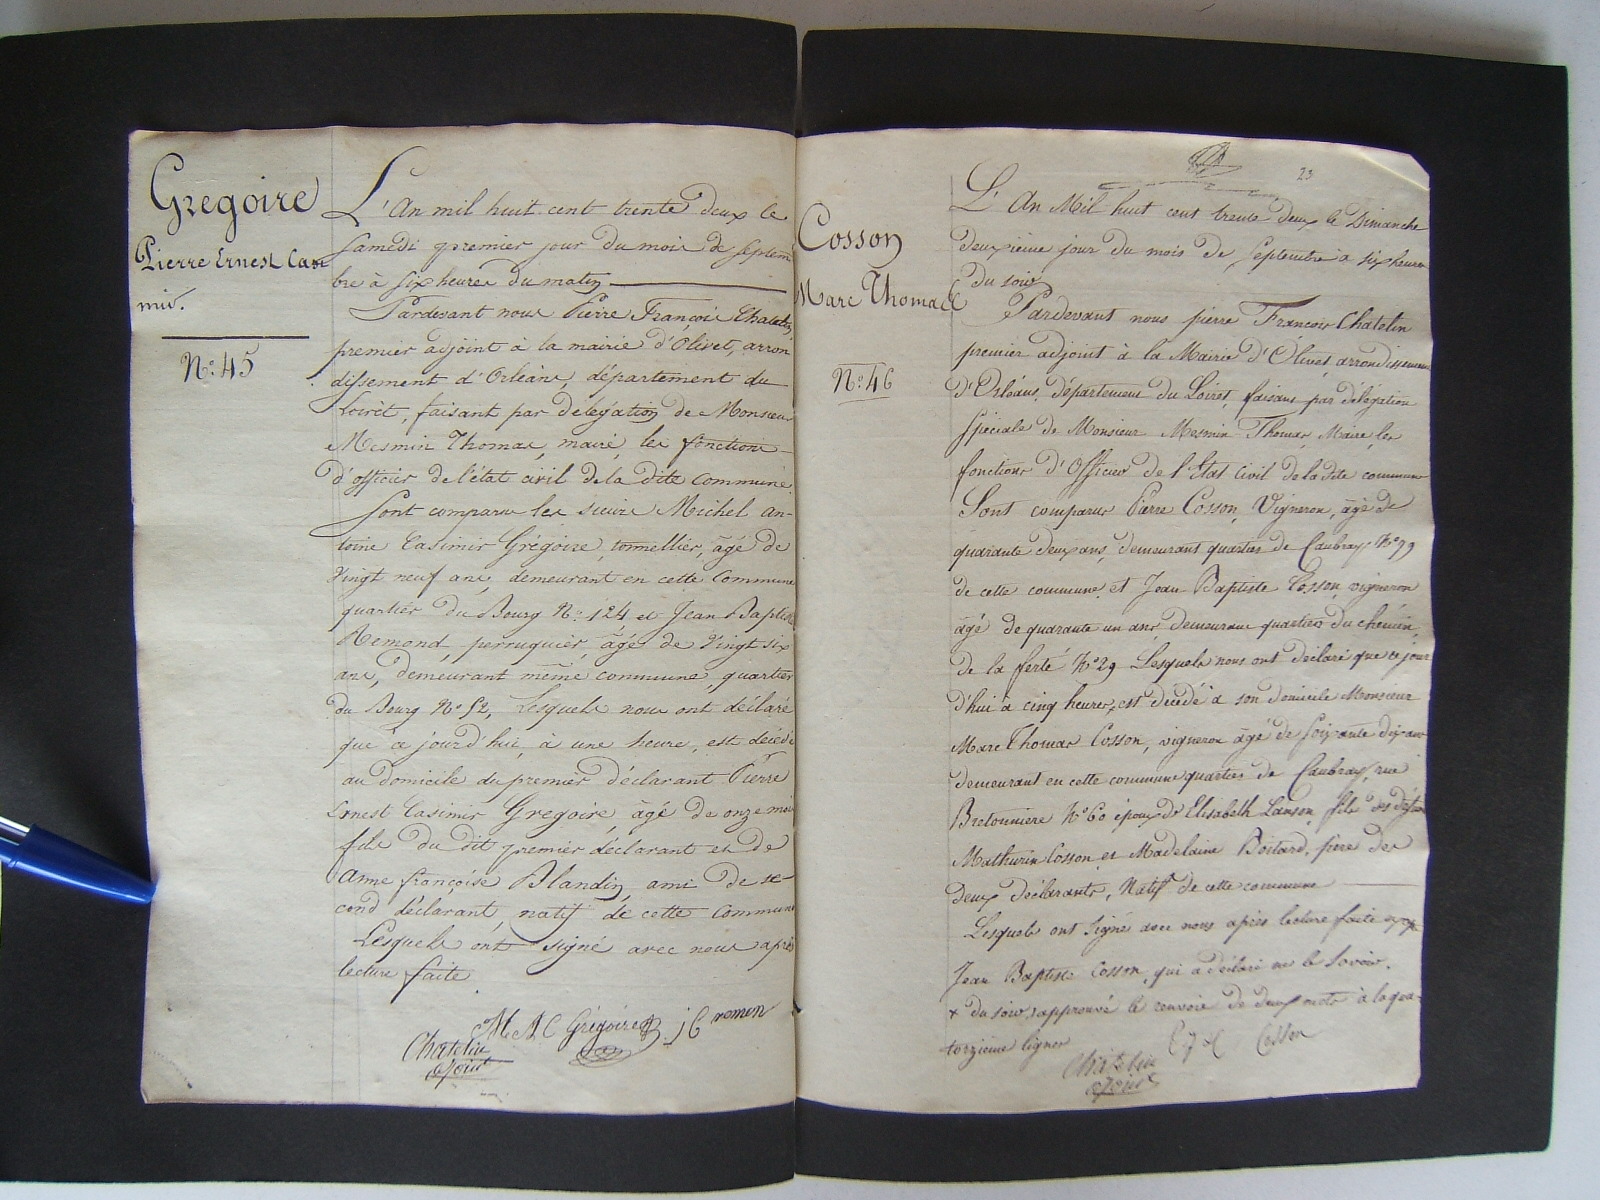 Gregoire
Pierre Ernest Casi
mir.
N° 45
L'An mil huit cent trente deux le
samedi premier jour du mois de septem
bre à six heures du matin
Pardevant nous Pierre François Chatelin
premier adjoint à la mairie d'Olivet, arron
dissement d'Orléans, département du
Loiret, faisant par délégation de Monsieur
Mesmin Thomas, maire, les fonctions
d'officier de l'état civil de la dite commune.
Sont comparus les sieurs Michel an-
toine Casimir Grégoire, tonnellier, âgé de
vingt neuf ans, demeurant en cette commune
quartier du Bourg N° 124 et Jean Baptiste
Remond, perruquier, âgé de vingt six
ans, demeurant même commune, quartier
du Bourg N° 52, Lesquels nous ont déclaré
que ce jourd'hui, à une heure, est décédé
au domicile du premier déclarant Pierre
Ernest Casimir Gregoire, âgé de onze mois
fils du dit premier déclarant et de
Anne françoise Blandin, ami de se-
cond déclarant, natif de cette commune
Lesquels ont signé avec nous après
lecture faite.
M A C Grégoire j B remon
Chatelin
adjoint
23
Cosson
Marc Thomas
N° 46
L'An Mil huit cent trente deux le Dimanche
deuxième jour du mois de Septembre à six heures
du soir
Pardevant nous pierre François Chatelin
premier adjoint à la Mairie d'Olivet arrondissement
d'Orléans, département du Loiret, faisant par délégation
spéciale de Monsieur Mesmin Thomas, Maire, les
fonctions d'Officier de l'Etat Civil de la dite commune
Sont comparus Pierre Cosson, Vigneron, âgé de
quarante deux ans, demeurant quartier de Caubray N° 79
de cette commune, et Jean Baptiste Cosson, vigneron
âgé de quarante un ans, demeurant quartier du chemin
de la ferté N° 29 Lesquels nous ont déclaré que ce jour
d'hui à cinq heures x est décédé à son domicile Monsieur
Marc Thomas Cosson, vigneron âgé de soixante dix ans
demeurant en cette commune quartier de Caubray, rue
Bretonniere N° 60 époux de Elisabeth Lanson, fils des défunts
Mathurin Cosson et Madelaine Boitard, père des
deux déclarants, Natif de cette commune
Lesquels ont signé avec nous après lecture faite excepté
Jean Baptiste Cosson, qui a déclaré ne le savoir.
x du soir, approuvé le renvoie de deux mots à la qua-
torzieme ligne
Cosson
Chatelin
adjoint